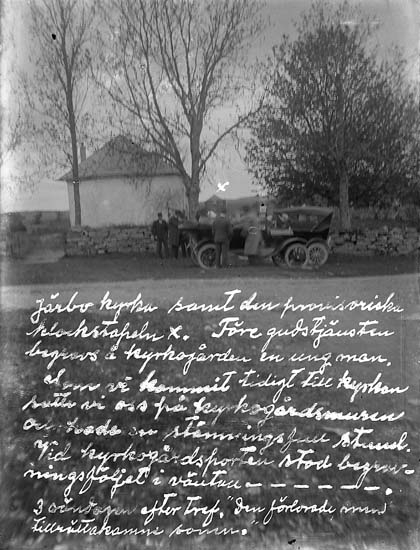 x
Järbo kyrka samt den provisoriska
klockstapeln x. Före gudstjänsten
begrovs å kyrkogården en ung man.
Som vi kommit tidigt till kyrkan
satte vi oss på kyrkogårdsmuren
och hade en stämningsfull stund.
Vid kyrkogårdsporten stod begrav-
ningsföljet i väntan — — — — —.
3 söndagen efter tref. "Den förlorade, men
tillrättakomne sonen."